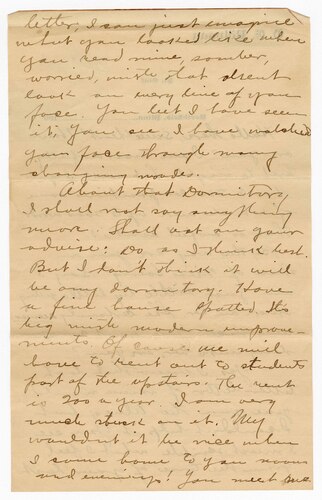 letter, I can just imagine
what you looked like when
you read mine, somber,
worried, with that absent
look on every line of your
face. You bet I have seen
it, You see I have watched
your face through many
changing moods.
About that Dormitory
I shall not say anything
more. Shall act on your
advise: Do as I think best.
But I don't think it will
be any dormitory. Have
a fine house spotted. Its
big with modern improve-
ments. Of course we will
have to rent out to students
part of the upstairs. The rent
is 200 a year. I am very
much stuck on it. My
wouldn't it be nice when
I come home to you noons
and evenings! You meet me